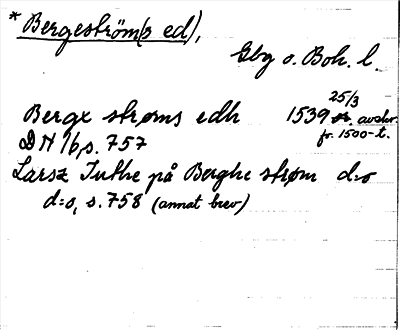 * Bergeström(s ed),
Gbg o. Boh. l.
Bergx strøms edh 1539 25/3 avskr. fr. 1500-t.
DN 16, s. 757
Larsz Iuthe på Berghe strøm d:o
d:o, s. 758 (annat brev)